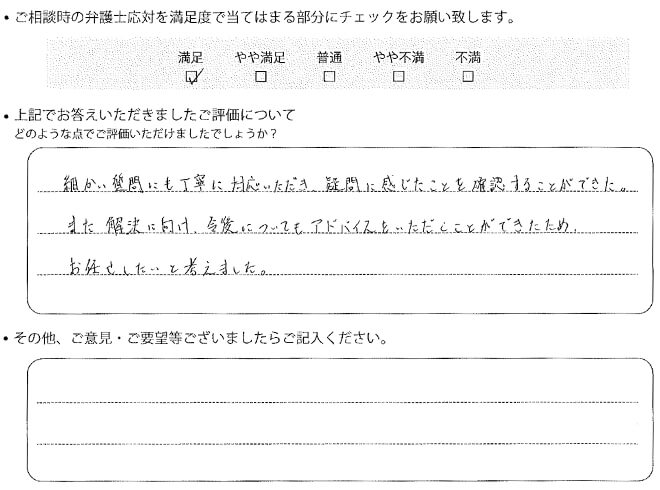 • ご相談時の弁護士応対を満足度で当てはまる部分にチェックをお願い致します。
満足 やや満足 普通 やや不満 不満
☑ □ □ □ □
• 上記でお答えいただきましたご評価について
どのような点でご評価いただけましたでしょうか？
細かい質問にも丁寧に対応いただき、疑問に感じたことを確認することができた。
また 解決に向け、今後についてもアドバイスをいただくことができたため、
お任せしたいと考えました。
• その他、ご意見・ご要望等ございましたらご記入ください。